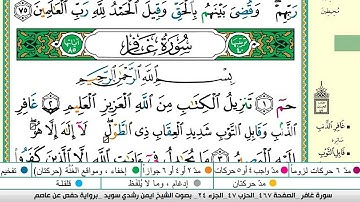 رَبِّهِمْ وَقُضِيَ بَيْنَهُم بِٱلْحَقِّ وَقِيلَ ٱلْحَمْدُ لِلَّهِ رَبِّ ٱلْعَٰلَمِينَ ٧٥
سُورَةُ غَافِر
بِسْمِ ٱللَّهِ ٱلرَّحْمَٰنِ ٱلرَّحِيمِ
حمٓ ١ تَنزِيلُ ٱلْكِتَٰبِ مِنَ ٱللَّهِ ٱلْعَزِيزِ ٱلْعَلِيمِ ٢ غَافِرِ
ٱلذَّنۢبِ وَقَابِلِ ٱلتَّوْبِ شَدِيدِ ٱلْعِقَابِ ذِي ٱلطَّوْلِ لَآ إِلَٰهَ إِلَّا هُوَ
غَافِرِ الذَّنْبِ
قَابِلِ التَّوْبِ
مدّ ٦ حركات لزوماً
مدّ ٢ أو ٤ أو ٦ جوازاً
إخفاء، ومواقع الغُنَّة (حركتان)
تفخيم
مدّ حركتان
إدغام، وما لا يُلفَظ
قلقلة
سورة غافر الصفحة ٤٦٧ الحزب ٤٧ الجزء ٢٤ بصوت الشيخ ايمن رشدي سويد برواية حفص عن عاصم